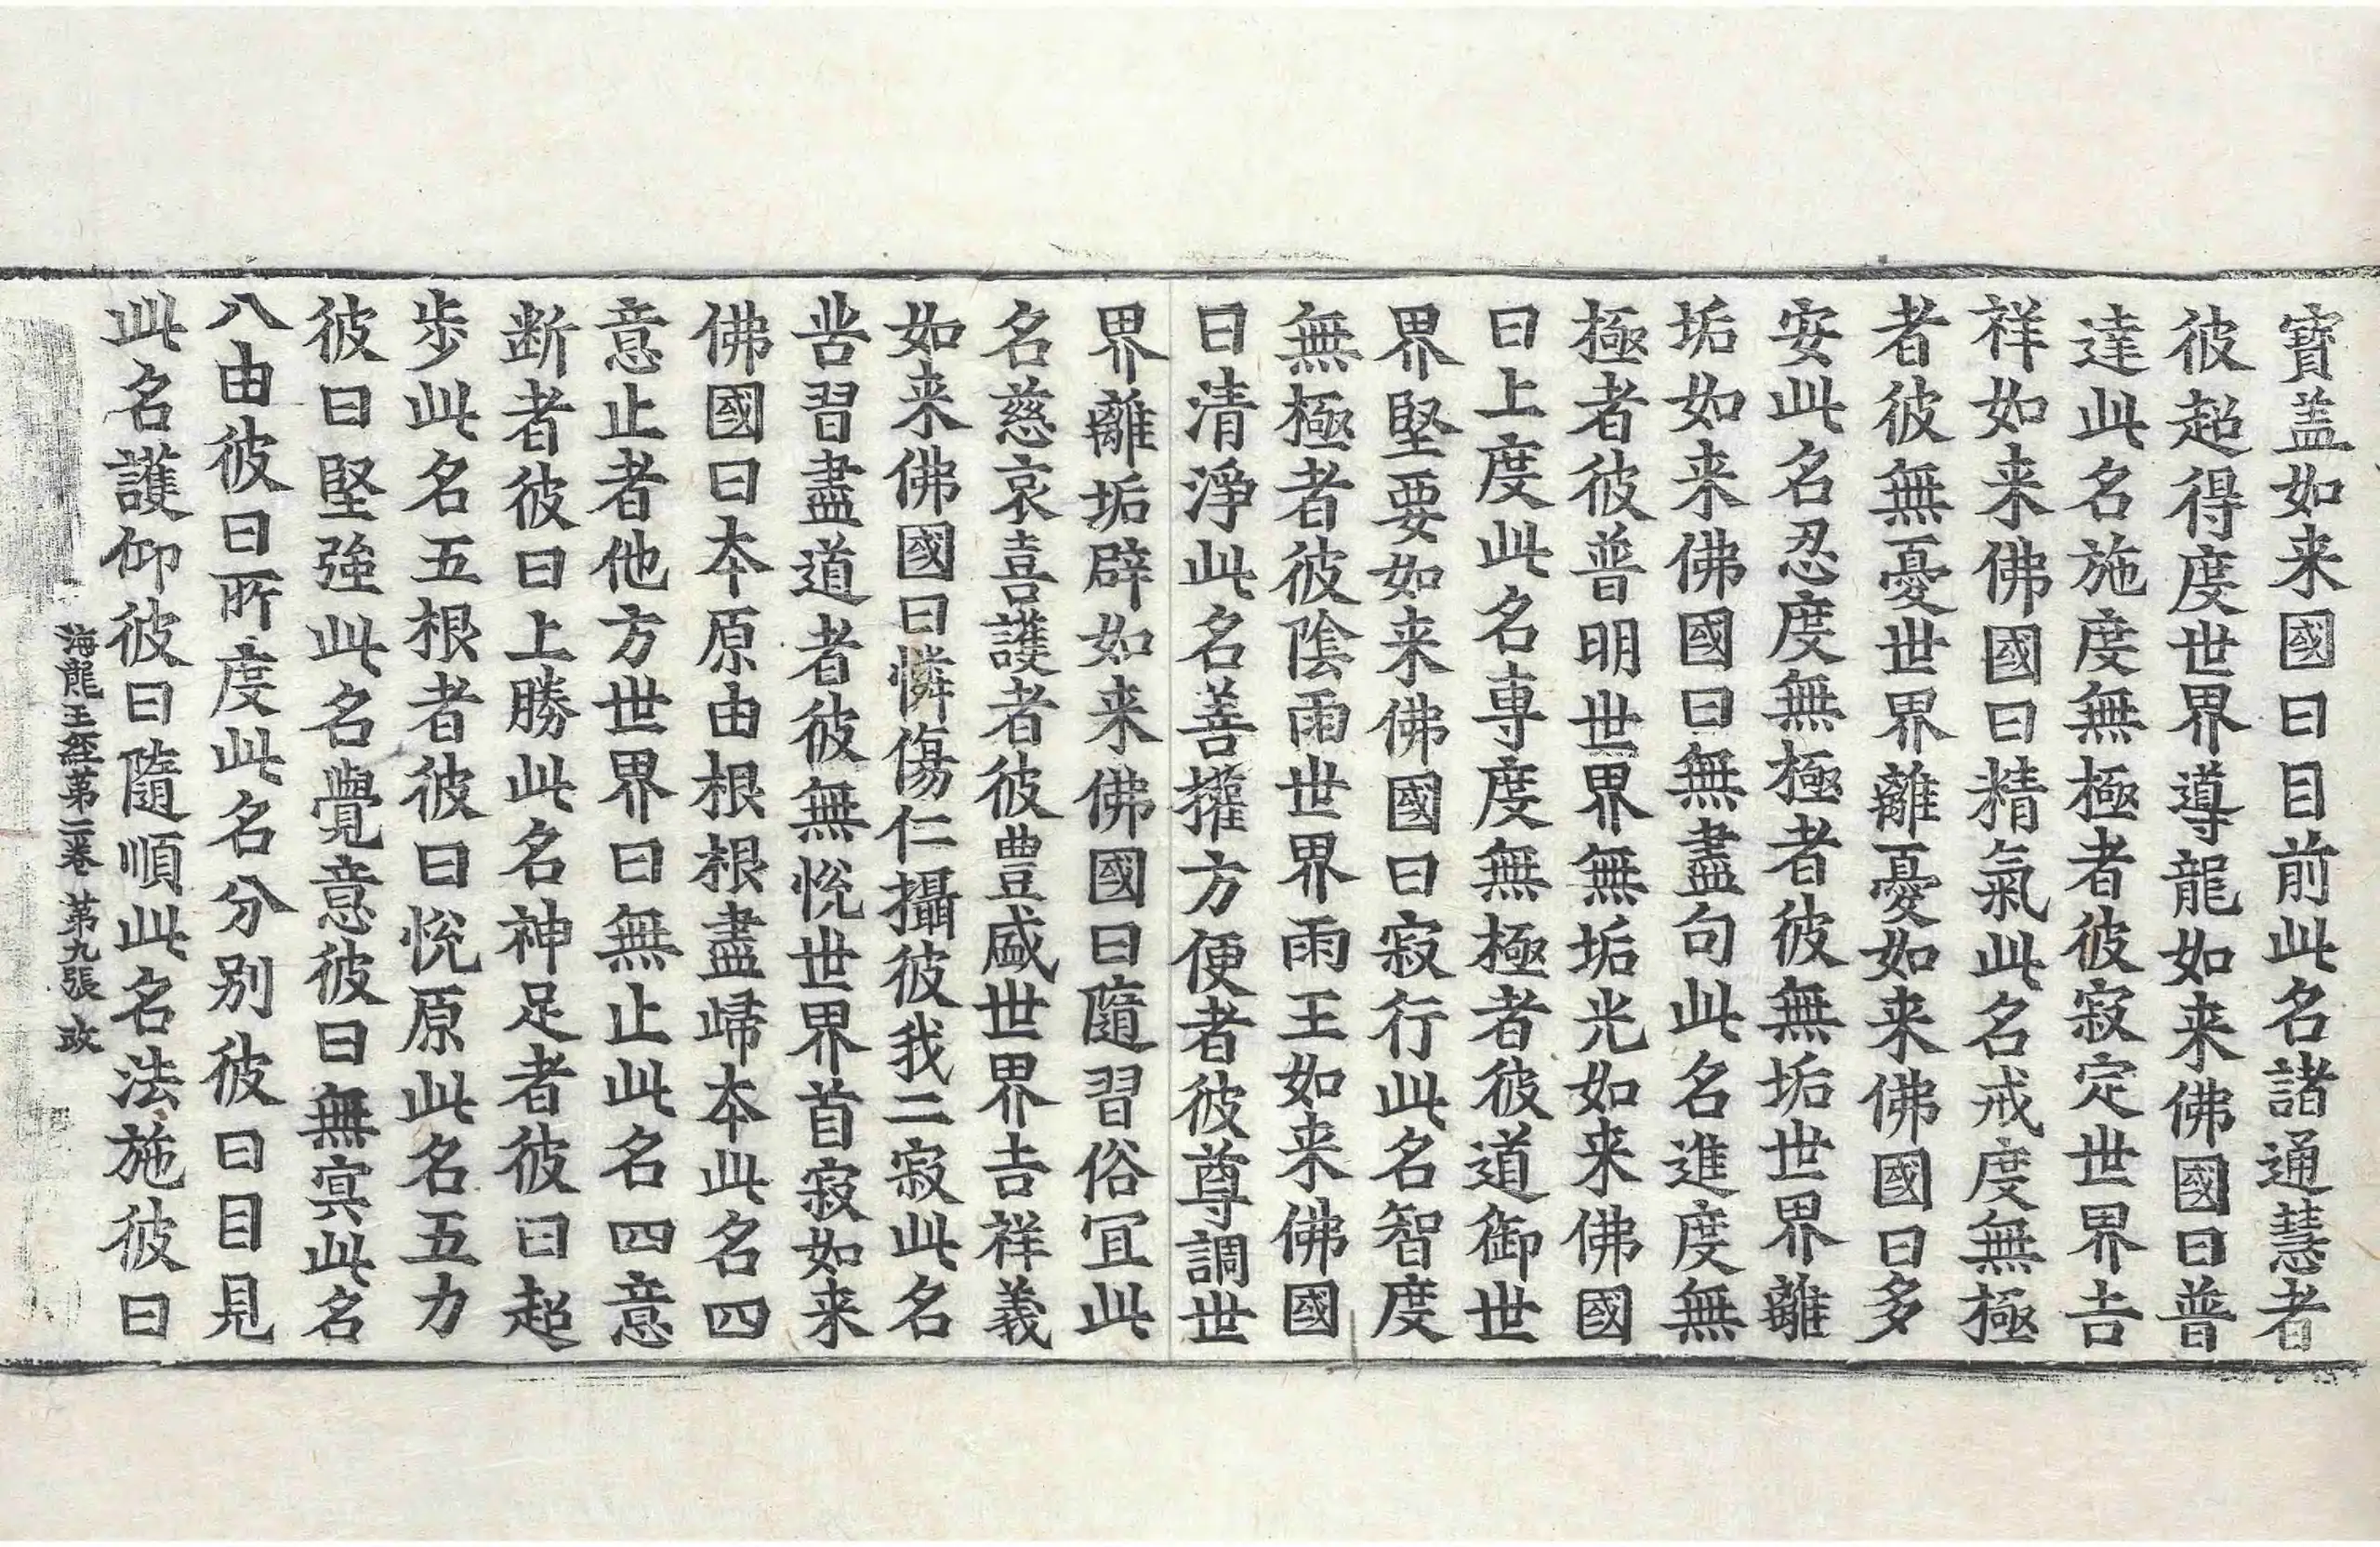 寶盖如来國曰目前此名諸通慧者
彼超得度世界導龍如来佛國曰普
達此名施度無極者彼寂定世界吉
祥如来佛國曰精氣此名戒度無極
者彼無憂世界離憂如来佛國曰多
安此名忍度無極者彼無垢世界離
垢如来佛國曰無盡句此名進度無
極者彼普明世界無垢光如来佛國
曰上度此名専度無極者彼道御世
界堅要如来佛國曰寂行此名智度
無極者彼陰雨世界雨王如来佛國
曰清淨此名善權方便者彼尊調世
界離垢辟如来佛國曰隨習俗冝此
名慈哀喜護者彼豊盛世界吉祥義
如来佛國曰憐傷仁攝彼我二寂此名
苦習盡道者彼無恱世界首寂如来
佛國曰夲原由根根盡歸夲此名四
意止者他方世界曰無止此名四意
断者彼曰上勝此名神足者彼曰超
歩此名五根者彼曰恱原此名五力
彼曰堅強此名覺意彼曰無㝠此名
八由彼曰所度此名分别彼曰目見
此名護仰彼曰隨順此名法施彼曰
海龍王經第二卷 第九張 政